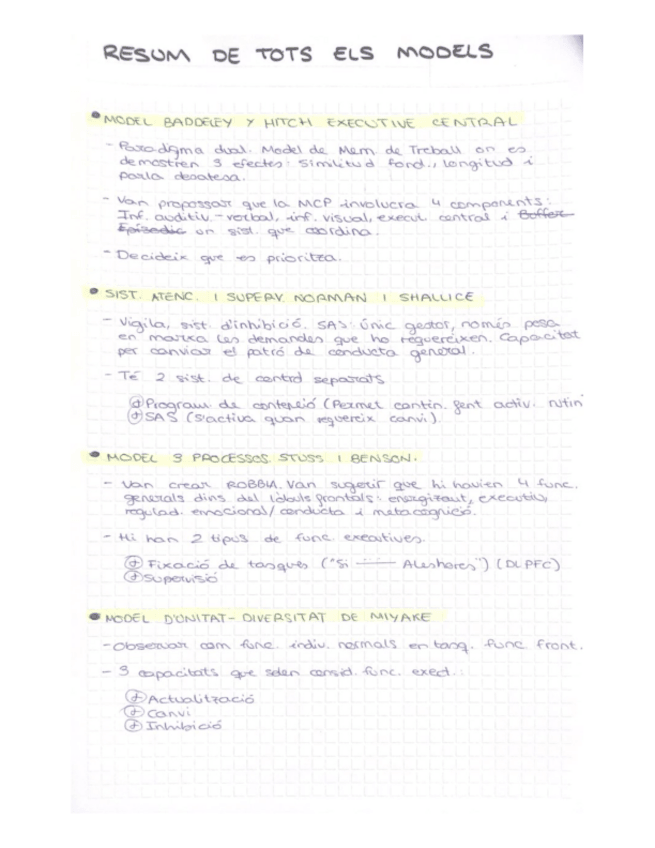 RESUM DE TOTS ELS MODELS
• MODEL BADDELEY Y HITCH EXECUTIVE CENTRAL
- Paradigma dual. Model de Mem. de Treball on es
demostren 3 efectes: Similitud fond., longitud i
parla desatesa.
- Van propossar que la MCP involucra 4 components:
Inf. auditiv.-verbal, inf. visual, execut. central i Boffer
Episodic un sist. que coordina.
- Decideix que es prioritza.
• SIST. ATENC. I SUPERV. NORMAN I SHALLICE
- Vigila, sist. d'inhibició. SAS: Únic gestor, només posa
en marxa les demandes que ho requereixen. Capacitat
per canviar el patró de conducta general.
- Té 2 sist. de control separats
Program. de contenció (Permet contin. fent activ. rutin
SAS (S'activa quan requereix canvi).
• MODEL 3 PROCESSOS STUSS I BENSON.
- Van crear ROBBIA. Van suggerir que hi havien 4 func.
generals dins del lòbuls frontals: energitzant, executiu,
regulad. emocional/conducta i metacognició.
- Hi han 2 tipus de func. executives.
Fixació de tasques ("Si —— Aleshores") (DLPFC)
Supervisió
• MODEL D'UNITAT-DIVERSITAT DE MIYAKE
- Observar com func. indiv. normals en tasq. func front.
- 3 capacitats que solen consid. func. exect.:
Actualització
Canvi
Inhibició